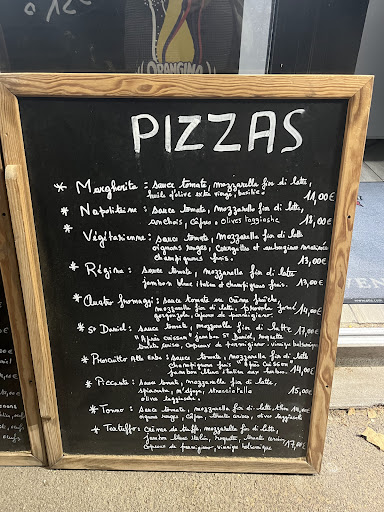 ORANGINA
PIZZAS
* Margherita : sauce tomate, mozzarella fior di latte,
huile d'olive extra vierge, basilic. 11,00€
* Napolitaine : sauce tomate, mozzarella fior di latte,
anchois, câpres, olives taggiasche 13,00€
* Végétarienne : sauce tomate, mozzarella fior di latte
oignons rouges, courgettes et aubergines marinées
champignons frais. 13,00€
* Régina : sauce tomate, mozzarella fior di latte
jambon blanc italien et champignons frais. 13,00€
* Quatro fromaggi : sauce tomate ou crème fraîche,
mozzarella fior di latte, provola fumé
gorgonzola, copeaux de parmigiano. 14,00€
* St Daniel : sauce tomate, mozzarella fior di latte 17,00€
"Après cuisson" jambon St Daniel, roquette
tomate cerise, copeaux de parmigiano, vinaigre balsamique
* Prosciutto alle erbe : sauce tomate, mozzarella fior di latte
champignons frais "Après cuisson"
jambon blanc italien aux herbes 14,00€
* Piccante : sauce tomate, mozzarella fior di latte,
spianata, n'duja, stracciatella
olive taggiasche. 15,00€
* Tonno : sauce tomate, mozzarella fior di latte, thon 14,00€
oignons rouges, câpres, tomate cerises, olives taggiasche
* Tartuffo : Crème de truffe, mozzarella fior di latte,
jambon blanc italien, roquette, tomate cerises 17,00€
copeaux de parmigiano, vinaigre balsamique